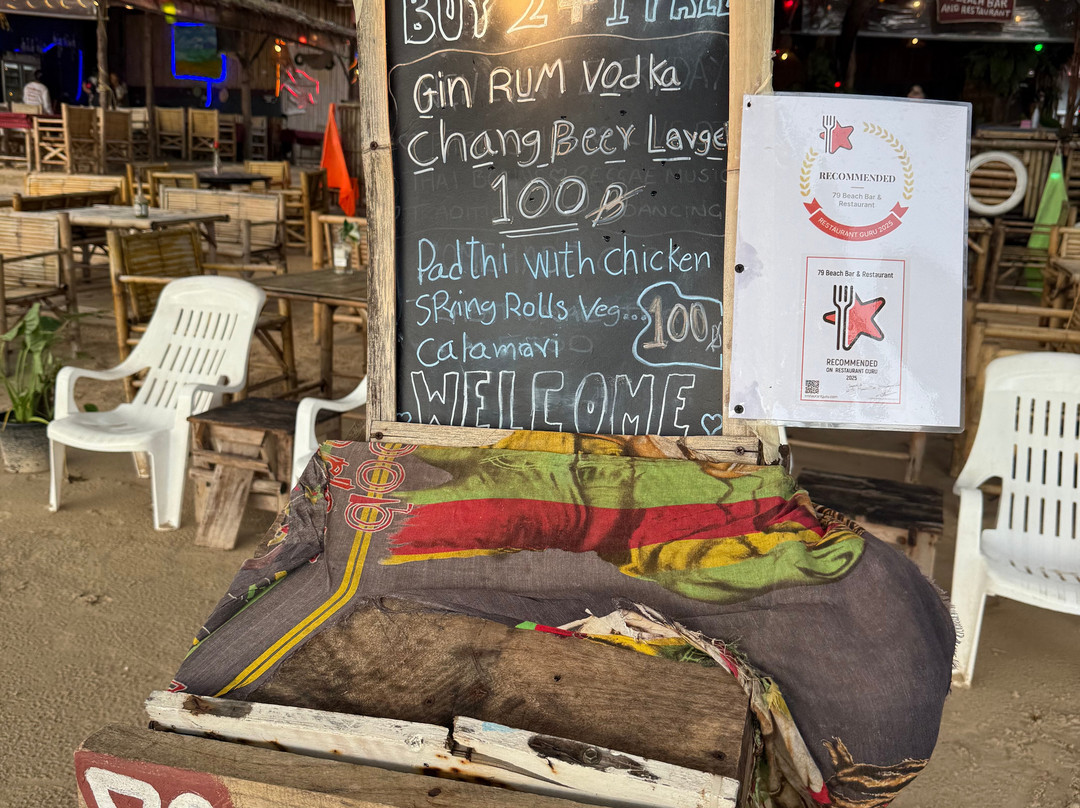 BUY 2 + 1 FREE
Gin RUM Vodka
Chang Beer Large
100฿
Padthi with chicken
SRring Rolls Veg...
100฿
Calamari
WELCOME
RECOMMENDED
79 Beach Bar &
Restaurant
RESTAURANT GURU 2025
79 Beach Bar & Restaurant
RECOMMENDED
ON RESTAURANT GURU
2025
BEACH BAR
AND RESTAURANT